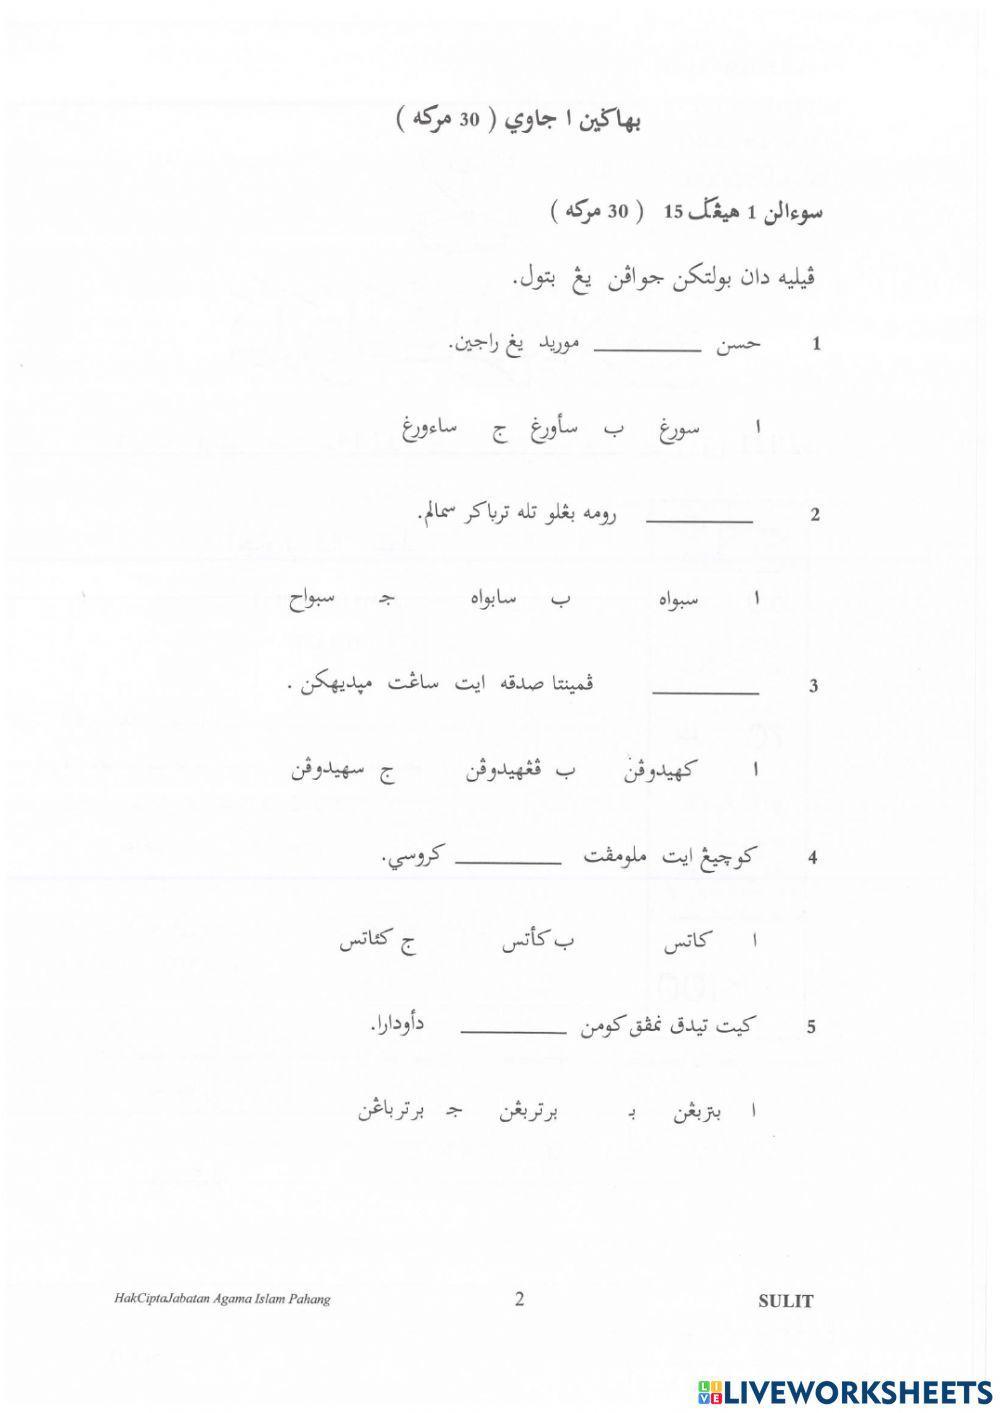 بهاݢين ا جاوي ( 30 مركه )
سوءالن 1 هيڠݢ 15 ( 30 مركه )
ڤيليه دان بولتكن جواڤن يڠ بتول.
1 حسن ________ موريد يڠ راجين.
ا سورڠ ب سأورڠ ج ساءورڠ
2 ________ رومه بڠلو تله ترباكر سمالم.
ا سبواه ب سابواه ج سبواح
3 ________ ڤمينتا صدقه ايت ساڠت مڽديهكن .
ا كهيدوڤن ب ڤڠهيدوڤن ج سهيدوڤن
4 كوچيڠ ايت ملومڤت ________ كروسي.
ا كاتس ب كأتس ج كئاتس
5 كيت تيدق نمڤق كومن ________ دأودارا.
ا بتربڠن ب برتربڠن ج برترباڠن
HakCiptaJabatan Agama Islam Pahang 2 SULIT
LIVEWORKSHEETS